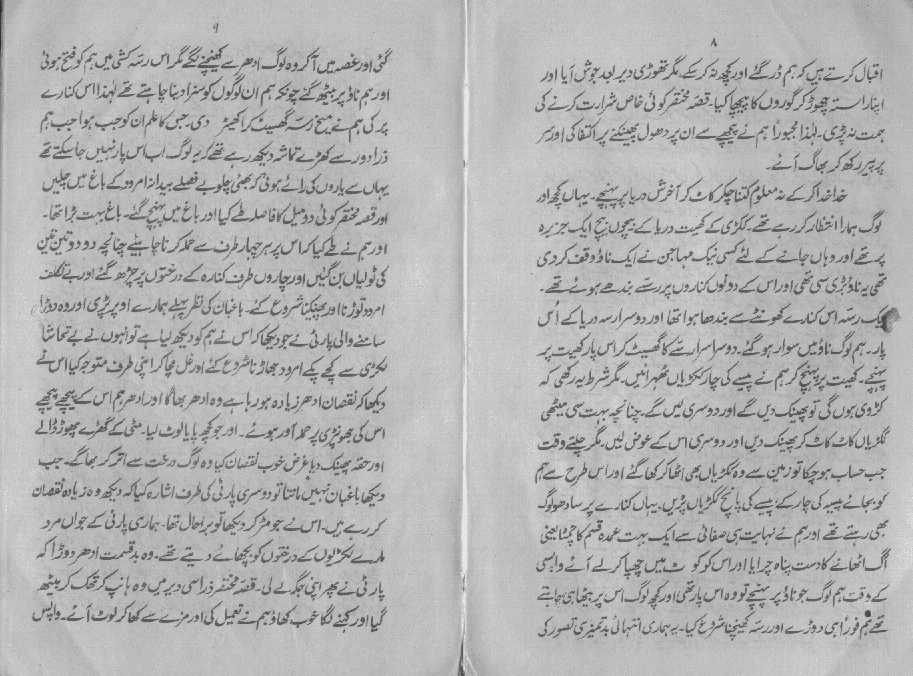 ۸
اقبال کرتے ہیں کہ ہم ڈر گئے اور کچھ نہ کر سکے۔ مگر تھوڑی دیر بعد جوش آیا اور
اپنا راستہ چھوڑ کر گوروں کا پیچھا کیا۔ قصہ مختصر کوئی خاص شرارت کرنے کی
ہمت نہ پڑی۔ لہٰذا مجبوراً ہم نے پیچھے سے ان پر دھول پھینکنے پر اکتفا کی اور سر
پر پیر رکھ کر بھاگ آئے۔
خدا خدا کر کے نہ معلوم کتنا چکر کاٹ کر آخرش دریا پر پہنچے۔ یہاں کچھ اور
لوگ ہمارا انتظار کر رہے تھے۔ ککڑی کے کھیت دریا کے بیچوں بیچ ایک جزیرہ
پر تھے اور وہاں جانے کے لئے کسی نیک مہاجن نے ایک ناؤ وقف کر دی
تھی یہ ناؤ بڑی سی تھی اور اس کے دونوں کناروں پر رسّے بندھے ہوئے تھے۔
ایک رسّہ اس کنارے کھونٹے سے بندھا ہوا تھا اور دوسرا رسہ دریا کے اُس
پار۔ ہم لوگ ناؤ میں سوار ہو گئے۔ دوسرا سرا رسّے کا گھسیٹ کر اس پار کھیت پر
پہنچے۔ کھیت پر پہنچ کر ہم نے پیسے کی چار ککڑیاں ٹھہرائیں۔ مگر شرط یہ رکھی کہ
کڑوی ہوں گی تو پھینک دیں گے اور دوسری لیں گے۔ چنانچہ بہت سی میٹھی
ککڑیاں کاٹ کاٹ کر پھینک دیں اور دوسری اس کے عوض لیں۔ مگر چلتے وقت
جب حساب ہو چکا تو زمین سے وہ ککڑیاں بھی اٹھا کر کھا گئے اور اس طرح سے ہم
کو بجائے پیسہ کی چار کے پیسے کی پانچ ککڑیاں پڑیں۔ یہاں کنارے پر سادھو لوگ
بھی رہتے تھے اور ہم نے نہایت ہی صفائی سے ایک بہت عمدہ قسم کا چمٹا یعنی
آگ اٹھانے کا دست پناہ چرایا اور اس کو کوٹ میں چھپا کر لے آئے واپسی
کے وقت ہم لوگ جو ناؤ پر پہنچے تو وہ اس پار تھی اور کچھ لوگ اس پر بیٹھا ہی چاہتے
تھے ہم فوراً ہی دوڑے اور رسّہ کھینچنا شروع کیا۔ یہ ہماری انتہائی بدتمیزی تصور کی
۹
گئی اور غصہ میں آ کر وہ لوگ ادھر سے کھینچنے لگے مگر اس رسّہ کشی میں ہم کو فتح ہوئی
اور ہم ناؤ پر بیٹھ گئے چونکہ ہم ان لوگوں کو سزا دینا چاہتے تھے لہٰذا اس کنارے
پر کی ہم نے میخ رسّہ گھسیٹ کر اکھیڑ دی۔ جس کا علم ان کو جب ہوا جب ہم
ذرا دور سے کھڑے تماشہ دیکھ رہے تھے کہ یہ لوگ اب اس پار نہیں جا سکتے تھے
یہاں سے یاروں کی رائے ہوئی کہ بھئی چلو بے فصلے بیدانہ امرود کے باغ میں چلیں
اور قصہ مختصر کوئی دو میل کا فاصلہ طے کیا اور باغ میں پہنچ گئے۔ باغ بہت بڑا تھا۔
اور ہم نے طے کیا کہ اس پر ہر چہار طرف سے حملہ کرنا چاہیئے چنانچہ دو دو تین تین
کی ٹولیاں بن گئیں اور چاروں طرف کنارہ کے درختوں پر چڑھ گئے اور بے تکلف
امرود توڑنا اور پھینکنا شروع کئے۔ باغبان کی نظر پہلے ہمارے اوپر پڑی اور وہ دوڑا
سامنے والی پارٹی نے جو دیکھا کہ اس نے ہم کو دیکھ لیا ہے تو انہوں نے بے تحاشا
لکڑی سے کچے پکے امرود جھاڑنا شروع کئے اور غل مچا کر اپنی طرف متوجہ کیا اس نے
دیکھا کہ نقصان ادھر زیادہ ہو رہا ہے وہ ادھر بھاگا اور ادھر ہم اس کے پیچھے پیچھے
اس کی جھونپڑی پر حملہ آور ہوئے۔ اور جو کچھ پایا لوٹ لیا۔ مٹی کے گھڑے پھوڑ ڈالے
اور حقہ پھینک دیا غرض خوب نقصان کیا وہ لوگ درخت سے اتر کر بھاگے۔ جب
دیکھا باغبان نہیں مانتا تو دوسری پارٹی کی طرف اشارہ کیا کہ دیکھ وہ زیادہ نقصان
کر رہے ہیں۔ اس نے جو مڑ کر دیکھا تو برا حال تھا۔ ہماری پارٹی کے جواں مرد
مارے لکڑیوں کے درختوں کو بچھائے دیتے تھے۔ وہ بدقسمت ادھر دوڑا کہ
پارٹی نے پھر اپنی جگہ لے لی۔ قصہ مختصر ذرا سی دیر میں وہ ہانپ کر تھک کر بیٹھ
گیا اور کہنے لگا خوب کھاؤ ہم نے تعمیل کی اور مزے سے کھا کر لوٹ آئے۔ واپس